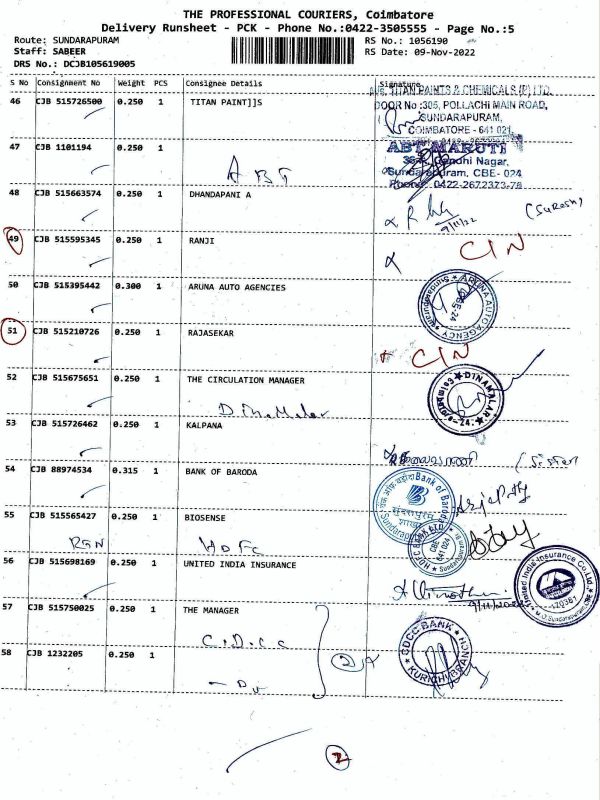 THE PROFESSIONAL COURIERS, Coimbatore
Delivery Runsheet - PCK - Phone No.:0422-3505555 - Page No.:5
Route: SUNDARAPURAM
RS No.: 1056190
Staff: SABEER
RS Date: 09-Nov-2022
DRS No.: DCJB105619005
S No Consignment No Weight PCS Consignee Details Signature
46 CJB 515726500 0.250 1 TITAN PAINT]]S
TITAN PAINTS & CHEMICALS (P) LTD.
DOOR No :305, POLLACHI MAIN ROAD,
SUNDARAPURAM,
COIMBATORE - 641 021.
47 CJB 1101194 0.250 1
ABT MARUTI
Gandhi Nagar,
Sundarapuram, CBE- 024
Phone: 0422-2672323-78
ABT
48 CJB 515663574 0.250 1 DHANDAPANI A
(Suresh)
9/11/22
49 CJB 515595345 0.250 1 RANJI
CIN
50 CJB 515395442 0.300 1 ARUNA AUTO AGENCIES
ARUNA AUTO AGENCY
Sundarapuram
CBE-24
51 CJB 515210726 0.250 1 RAJASEKAR
CIN
52 CJB 515675651 0.250 1 THE CIRCULATION MANAGER
Dinamalar
DINAMALAR
Coimbatore-24.
53 CJB 515726462 0.250 1 KALPANA
54 CJB 88974534 0.315 1 BANK OF BARODA
Bank of Baroda
55 CJB 515565427 0.250 1 BIOSENSE
RGN HDFC
HDFC BANK LTD
CBE
641 024
56 CJB 515698169 0.250 1 UNITED INDIA INSURANCE
United India Insurance Co.Ltd.
57 CJB 515750025 0.250 1 THE MANAGER
C.D.C.C
CDCC BANK
KURICHI BRANCH
58 CJB 1232205 0.250 1
- Do
2